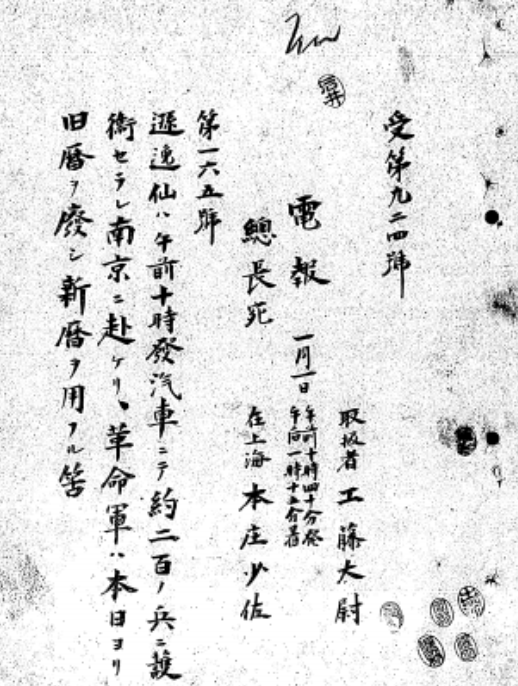 受第九二四號
取扱者 工藤大尉
電報 一月一日 午前十時四十分發
午后一時十五分着
總長宛 在上海 本庄少佐
第一六五號
遜逸仙ハ午前十時發汽車ニテ約二百ノ兵ニ護
衛セラレ南京ニ赴ケリ、革命軍ハ本日ヨリ
旧暦ヲ廢シ新暦ヲ用フル筈